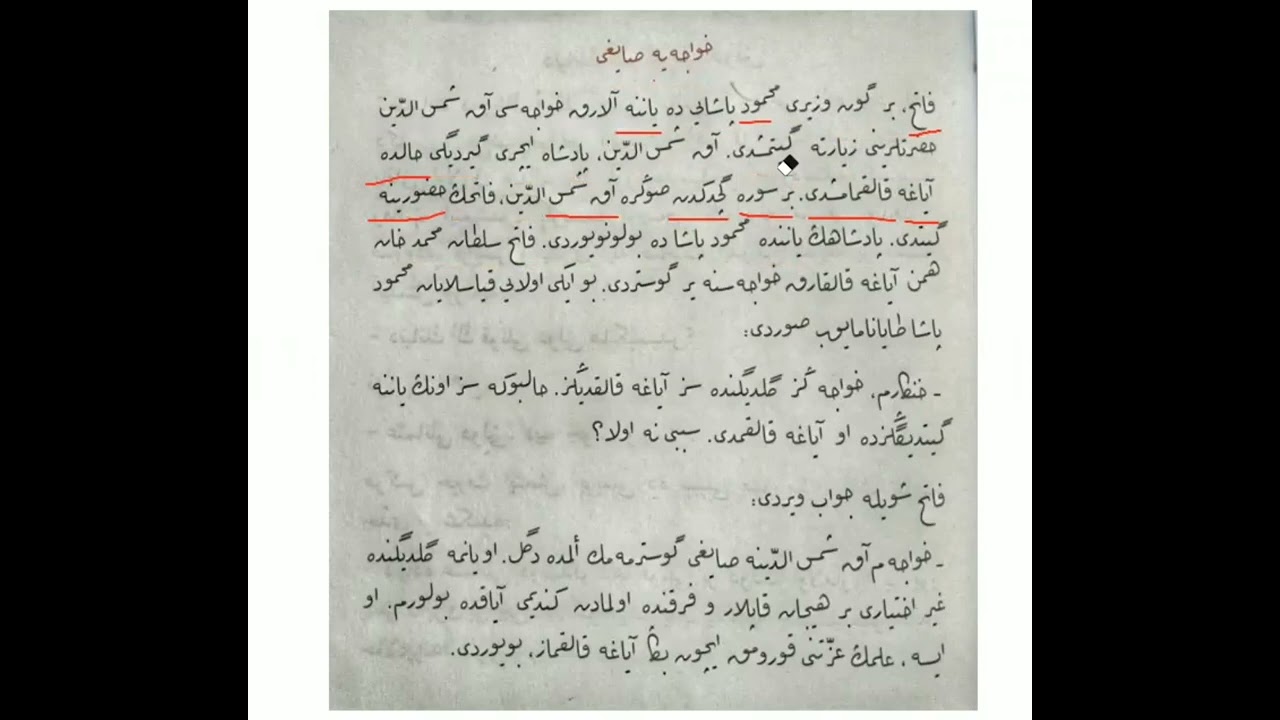 خواجه‌یه صایغی
فاتح، بر گون وزیری محمود پاشایی ده یاننه آلارق خواجه‌سی آق شمس الدّین
حضرتلرینی زیارته گیتمشدی. آق شمس الدّین، پادشاه ایچری گیردیگی حالده
آیاغه قالقمامشدی. بر سوره گچدکدن صوڭره آق شمس الدّین، فاتحڭ حضورینه
گیتدی. پادشاهڭ یاننده محمود پاشا ده بولونویوردی. فاتح سلطان محمد خان
همن آیاغه قالقارق خواجه‌سنه یر گوستردی. بو ایکی اولایی قیاسلایان محمود
پاشا طایانامایوب صوردی:
- خنکارم، خواجه ڭز گلدیگنده سز آیاغه قالقدیڭز. حالبوکه سز اونڭ یاننه
گیتدیگڭزده او آیاغه قالقمدی. سببی نه اولا؟
فاتح شویله جواب ویردی:
- خواجه م آق شمس الدّینه صایغی گوسترمه مك ألمده دگل. او یانمه گلدیگنده
غیر اختیاری بر هیجان قاپلار و فرقنده اولمادن کندیمی آیاقده بولورم. او
ایسه، علمڭ عزّتنی قورومق ایچون بڭا آیاغه قالقماز، بویوردی.